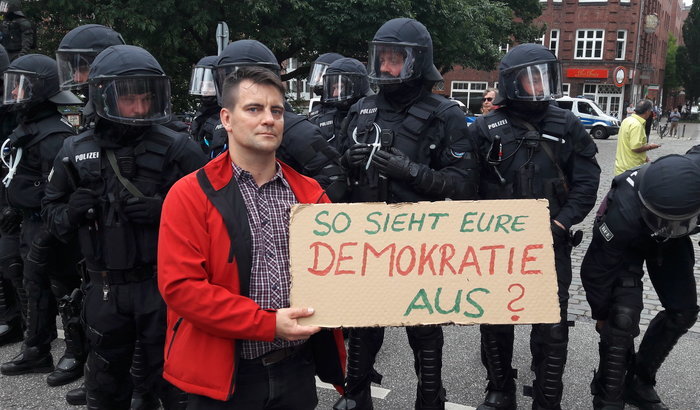 SO SIEHT EURE
DEMOKRATIE
AUS?
POLIZEI
POLIZEI
POLIZEI